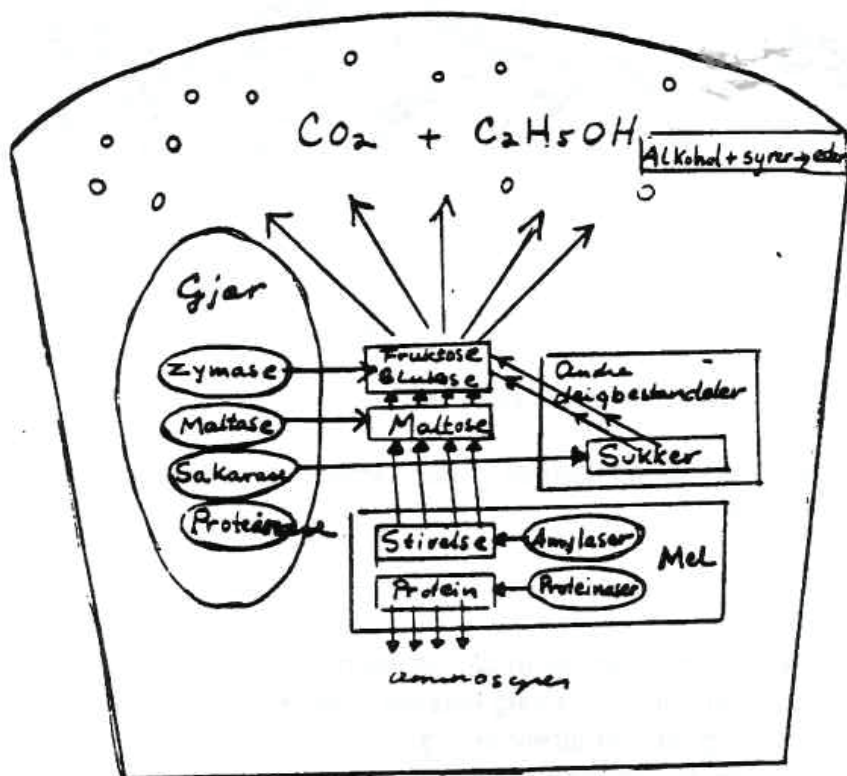 CO2 + C2H5OH
Alkohol + syrer → ester
Gjær
Zymase
Maltase
Sakarase
Proteinase
Fruktose
Glukose
Maltose
Andre
deigbestandeler
Sukker
Stivelse
Amylaser
Mel
Protein
Proteinaser
aminosyrer